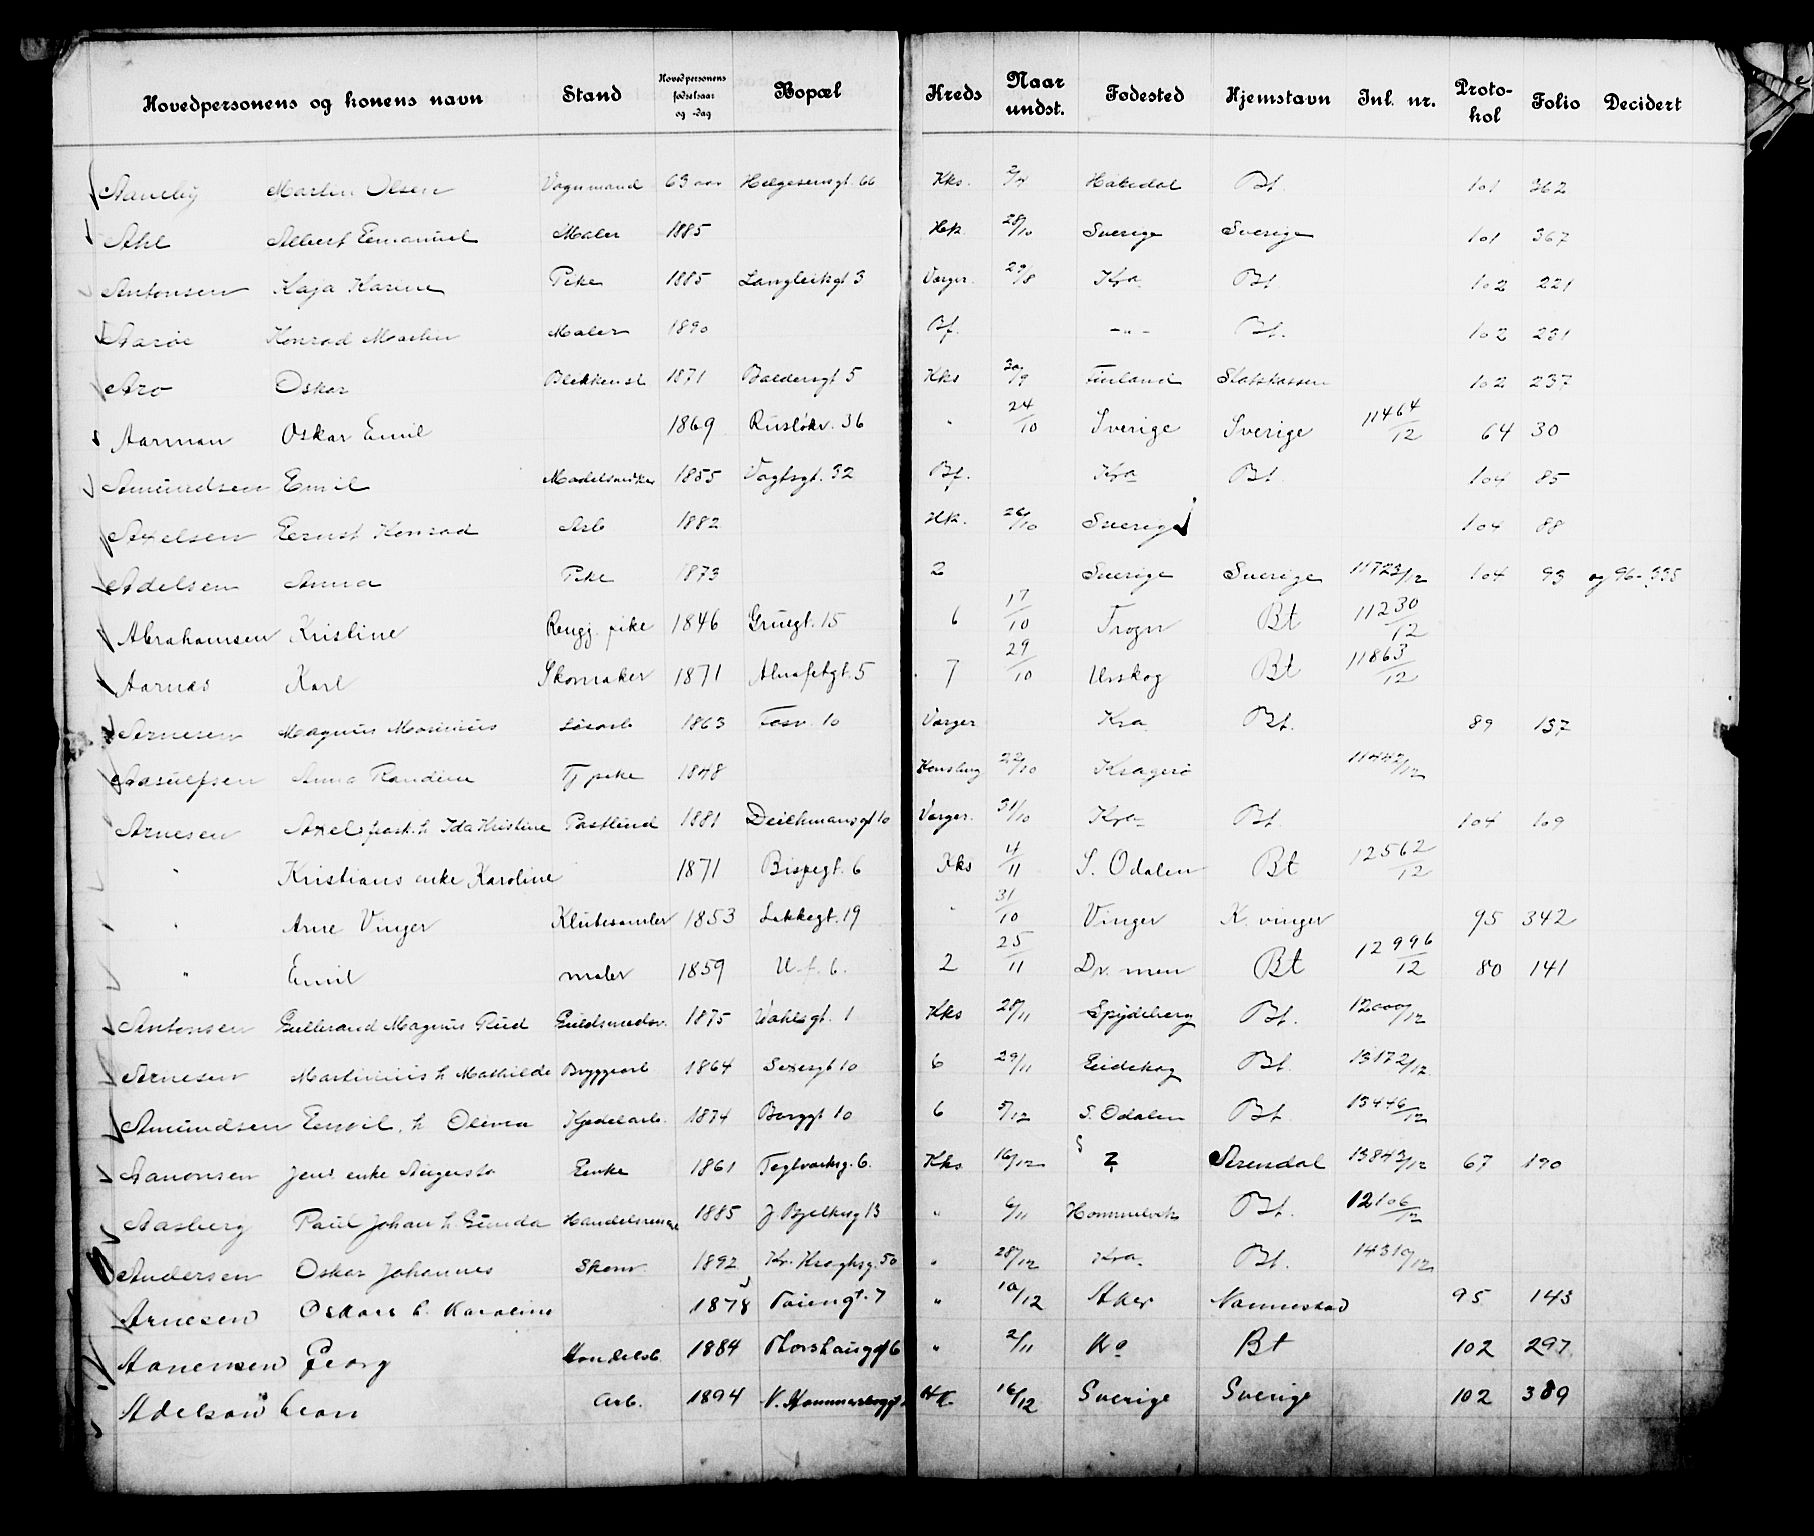 Hovedpersonens og konens navn Stand Hovedpersonens fødselsaar og -dag Bopæl Kreds Naar undst. Fødested Hjemstavn Inl. nr. Proto-kol Folio Decidert
Martin Olsen Vognmand 63 aar Helgesensgt. 66 Kks. Hakedal Bt. 101 362
Ahl Albert Emanuel Maler 1885 Hk. 28/10 Sverige Sverige 101 367
Antonsen Kaja Karine Pike 1885 Langleiksgt 3 Varger. 29/8 Kra Bt. 102 221
Aarøe Konrad Martin Maler 1890 Bf. -"- Bt. 102 231
Aro Oskar Blekkensl 1871 Baldersgt 5 Kks 30/9 Finland Statskassen 102 237
Aarman Oskar Emil 1869 Rusløkv. 36 " 24/10 Sverige Sverige 11464/12 64 30
Amundsen Emil Modelsnidker 1855 Vogtsgt. 32 Bf. Kra Bt. 104 85
Axelsen Ernst Konrad Arb 1882 Hk. 26/10 Sverige 104 88
Adelsen Anna Pike 1873 2 Sverige Sverige 11723/12 104 93 og 96-335
Abrahamsen Kristine Rengj. pike 1846 Grüegt. 15 6 17/10 Trogn Bt 11230/12
Aarnæs Karl Skomaker 1871 Almafetgt. 5 7 29/10 Urskog Bt 11863/12
Arnesen Magnus Maximius Løsarb 1863 Fosv. 10 Varger Kra Bt. 89 137
Aasulfsen Anna Randine Tj pike 1848 Konsberg 22/10 Kragerø 11442/12
Arnesen Axel frask. h Ida Kristine Postbud 1881 Deichmansgt 10 Varger. 31/10 Kra Bt. 104 109
" Kristians enke Karoline 1871 Bispegt. 6 Kks 4/11 S. Odalen Bt 12562/12
" Arne Vinger Klutesamler 1853 Lakkegt. 19 " 31/10 Vinger K. vinger 95 342
" Emil maler 1859 U. f. 6. 2 25/11 Dr. men Bt 12996/12 80 141
Antonsen Gulbrand Magnus Rud Guldsmedsv. 1875 Vahlsgt. 1 Kks 28/11 Spydeberg Bt. 12000/12
Arnesen Martinius h Mathilde Bryggearb 1864 Sexesgt 10 6 29/11 Eidskog Bt. 13172/12
Amundsen Emil. h Olivia Kjedelarb. 1874 Borggt 10 6 5/12 S. Odalen Bt. 13446/12
Aanonsen Jens enke Augusta Enke 1861 Teglverksg. 6. Kks 16/12 ? Arendal 13843/12 67 190
Aasberg Paul Johan h. Gunda Handelsreisende 1885 J. Bjelkesg 13 " 6/11 Hommelvik Bt. 12106/12
Andersen Oskar Johannes Skom. 1892 Kr. Kroghsg. 50 " 28/12 Kra. Bt. 14310/12
Arnesen Oskars h. Karoline 1878 Tøiengt. 7 " 10/12 Aker Nannestad 95 143
Aanensen Georg Handelsb. 1884 Thorshauggt 6 " 2/11 Ka Bt 102 297
Adelson Leon Arb. 1894 N. Hammersborggt Hk 16/12 Sverige Sverige 102 389